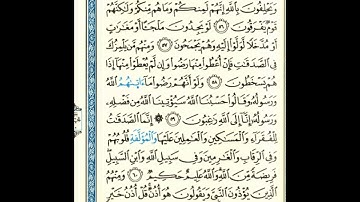 وَيَحْلِفُونَ بِٱللَّهِ إِنَّهُمْ لَمِنكُمْ وَمَا هُم مِّنكُمْ وَلَٰكِنَّهُمْ
قَوْمٌ يَفْرَقُونَ ٥٦ لَوْ يَجِدُونَ مَلْجَـًٔا أَوْ مَغَٰرَٰتٍ
أَوْ مُدَّخَلًا لَّوَلَّوْا۟ إِلَيْهِ وَهُمْ يَجْمَحُونَ ٥٧ وَمِنْهُم مَّن يَلْمِزُكَ
فِى ٱلصَّدَقَٰتِ فَإِنْ أُعْطُوا۟ مِنْهَا رَضُوا۟ وَإِن لَّمْ يُعْطَوْا۟ مِنْهَآ إِذَا
هُمْ يَسْخَطُونَ ٥٨ وَلَوْ أَنَّهُمْ رَضُوا۟ مَآ ءَاتَىٰهُمُ ٱللَّهُ
وَرَسُولُهُۥ وَقَالُوا۟ حَسْبُنَا ٱللَّهُ سَيُؤْتِينَا ٱللَّهُ مِن فَضْلِهِۦ
وَرَسُولُهُۥٓ إِنَّآ إِلَى ٱللَّهِ رَٰغِبُونَ ٥٩ ۞ إِنَّمَا ٱلصَّدَقَٰتُ
لِلْفُقَرَآءِ وَٱلْمَسَٰكِينِ وَٱلْعَٰمِلِينَ عَلَيْهَا وَٱلْمُؤَلَّفَةِ قُلُوبُهُمْ
وَفِى ٱلرِّقَابِ وَٱلْغَٰرِمِينَ وَفِى سَبِيلِ ٱللَّهِ وَٱبْنِ ٱلسَّبِيلِ
فَرِيضَةً مِّنَ ٱللَّهِ وَٱللَّهُ عَلِيمٌ حَكِيمٌ ٦٠ وَمِنْهُمُ
ٱلَّذِينَ يُؤْذُونَ ٱلنَّبِىَّ وَيَقُولُونَ هُوَ أُذُنٌ قُلْ أُذُنُ خَيْرٍ